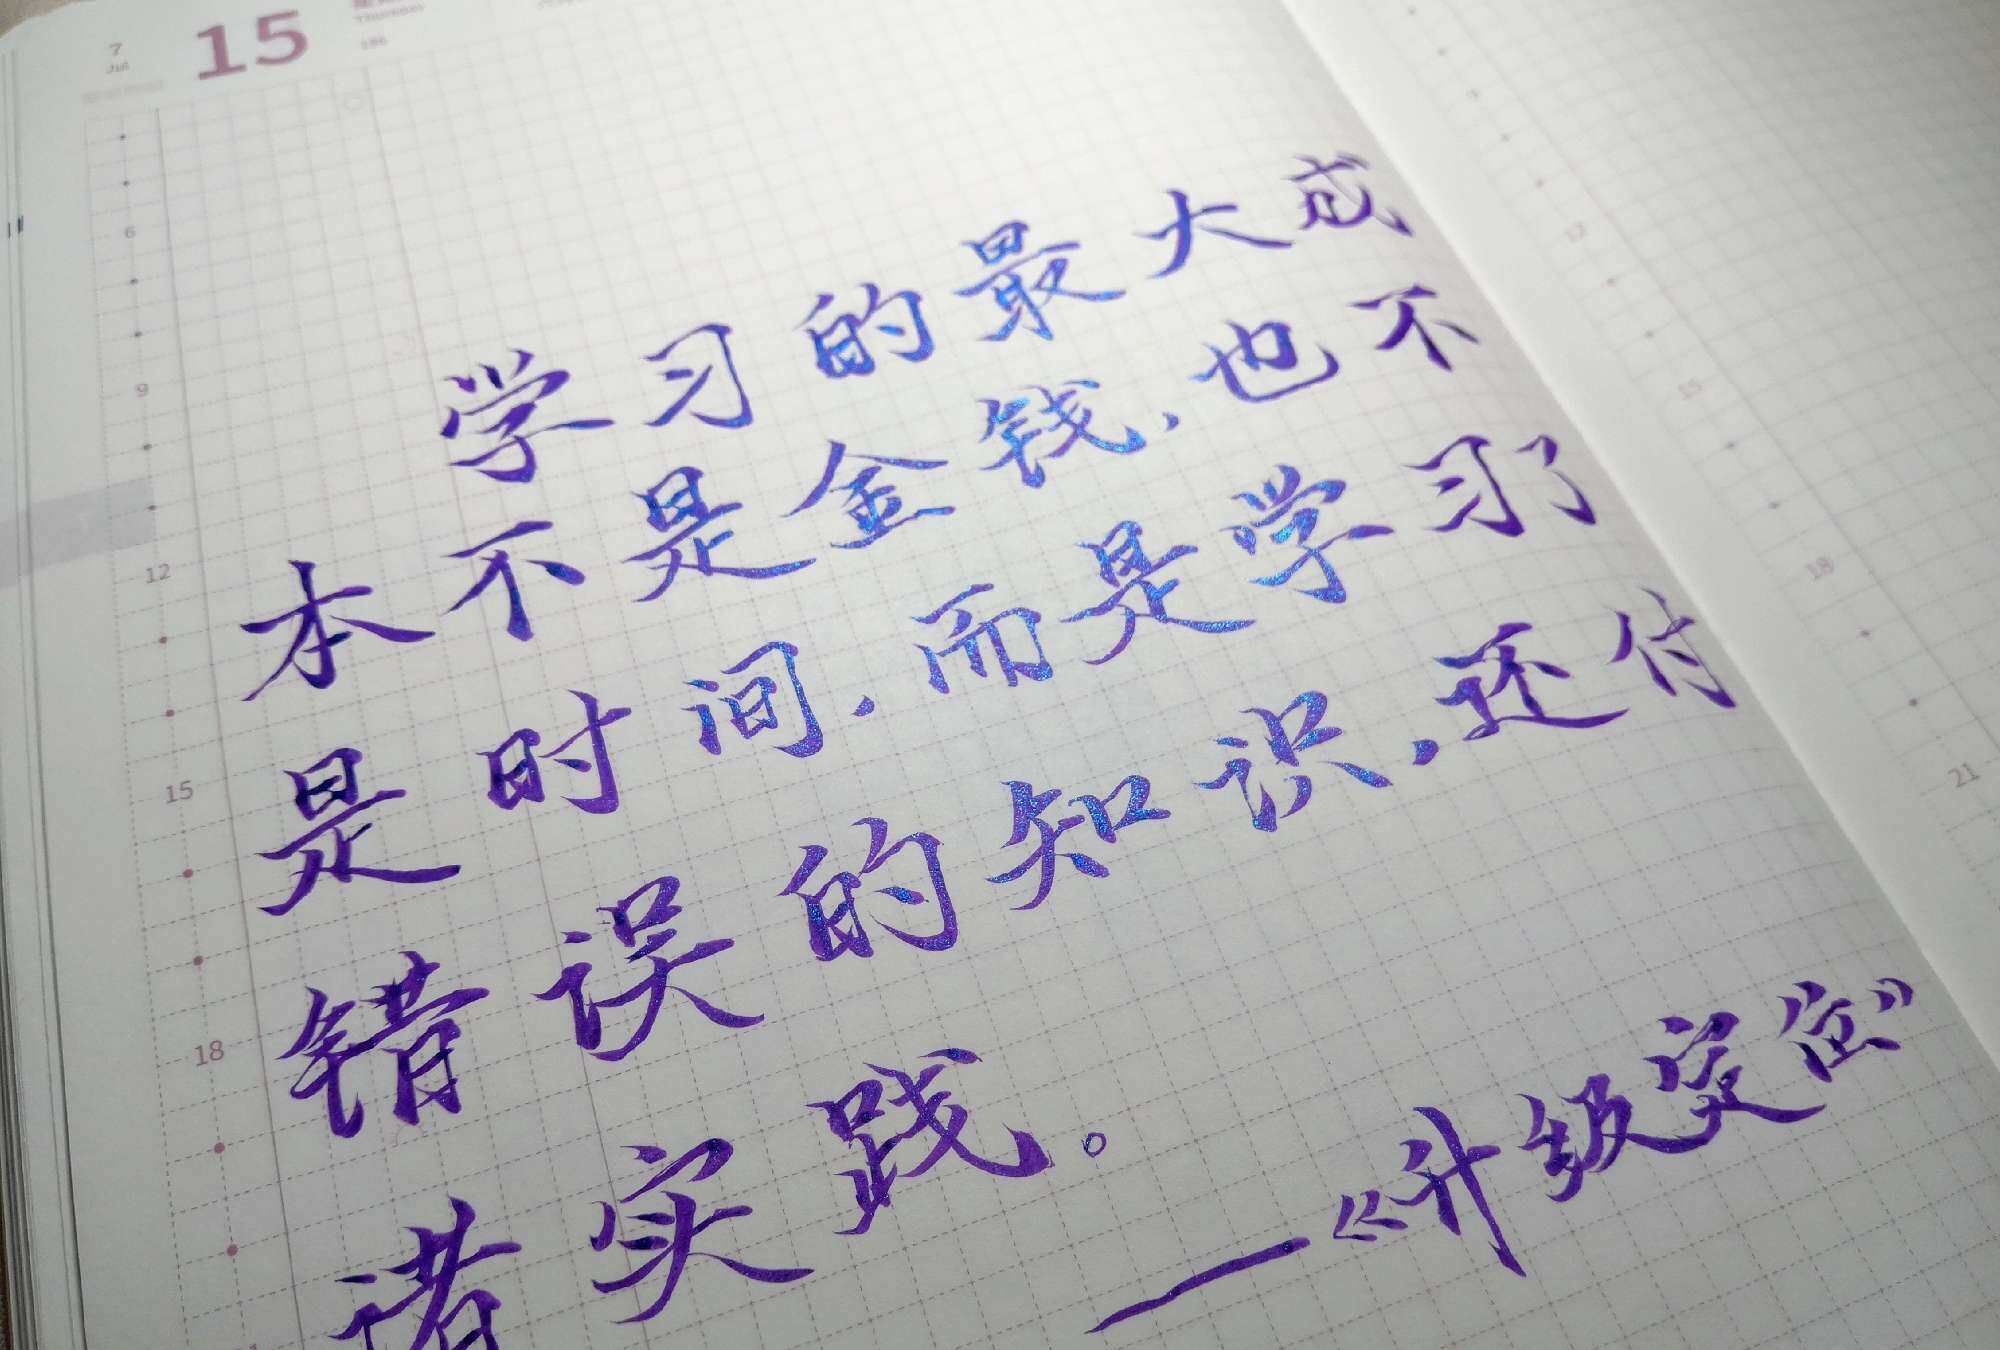 7
Jul
15
Thursday
196
学习的最大成
本不是金钱，也不
是时间，而是学习了
错误的知识，还付
诸实践。
—《升级定位》
6
9
12
15
18
21
9
12
15
18
21